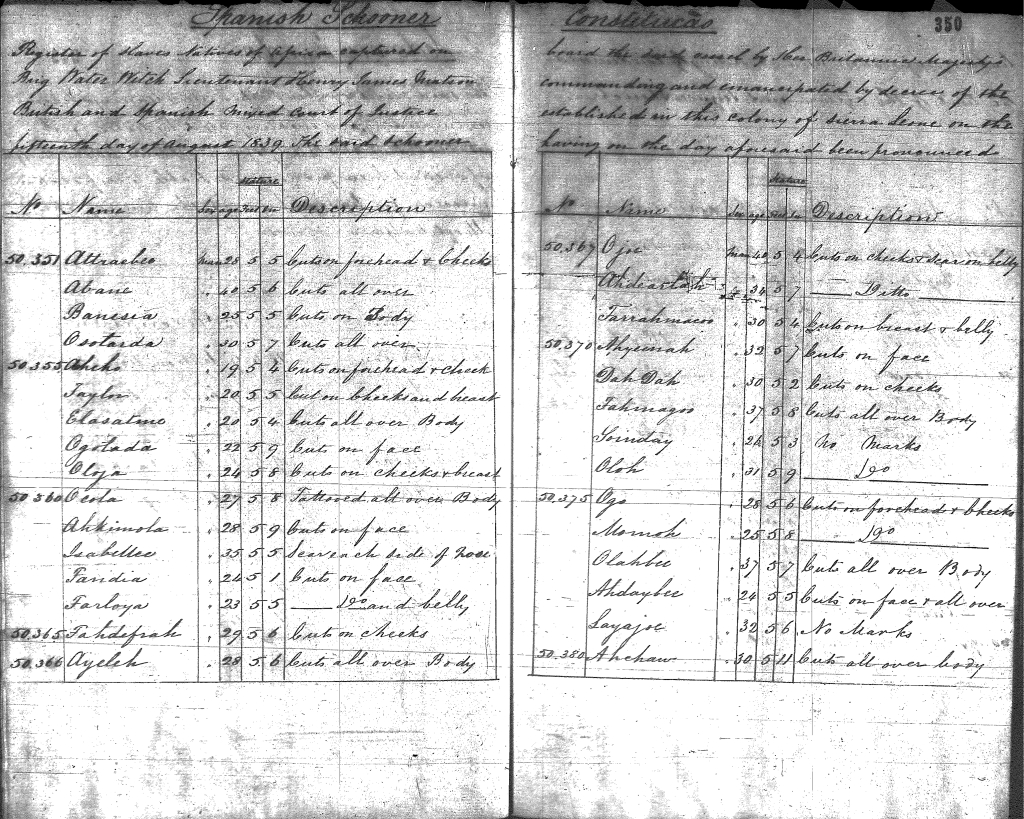 Spanish Schooner
Register of slaves Natives of Africa captured on
Brig Water Witch Lieutenant Henry James Matson
British and Spanish Mixed Court of Justice
fifteenth day of August 1839 The said Schooner
Stature
No Name Sex age Feet In Description
50,351 Attraebeo Man 28 5 5 Cuts on forehead & Cheeks
Abane " 40 5 6 Cuts all over
Banesia " 25 5 5 Cuts on Body
Osotarda " 30 5 7 Cuts all over
50,355 Aheko " 19 5 4 Cuts on forehead & cheek
Taylor " 20 5 5 Cut on Cheeks and breast
Elasatmo " 20 5 4 Cuts all over Body
Ogotada " 22 5 9 Cuts on face
Oloja " 24 5 8 Cuts on cheeks & breast
50,360 Ocola " 27 5 8 Tattooed all over Body
Ahkimola " 28 5 9 Cuts on face
Isabellee " 35 5 5 Scar each side of Nose
Fandia " 24 5 1 Cuts on face
Farloya " 23 5 5 Do and belly
50,365 Tahdefrah " 29 5 6 Cuts on cheeks
50,366 Ayeleh " 28 5 6 Cuts all over Body
Constetucão
350
board the said vessel by Her Britannic Majesty's
commanding and emancipated by decree of the
established in this colony of Sierra Leone on the
having on the day aforesaid been pronounced
Stature
No Name Sex age Feet In Description
50,367 Ojoe Man 40 5 4 Cuts on cheeks & scar on belly
" 34 5 7 Ditto
Farrahmacoo " 30 5 4 Cuts on breast & belly
50,370 Ahyeenah " 32 5 7 Cuts on face
Dah Dah " 30 5 2 Cuts on cheeks
Fahmagoo " 37 5 8 Cuts all over Body
Somday " 26 5 3 No Marks
Oloh " 31 5 9 Do
50,375 Ogo " 28 5 6 Cuts on forehead & Cheeks
Momoh " 25 5 8 Do
Olahbee " 37 5 7 Cuts all over Body
Ahdaybee " 24 5 5 Cuts on face & all over
Layajoe " 32 5 6 No Marks
50,380 Ahchaw " 30 5 11 Cuts all over body